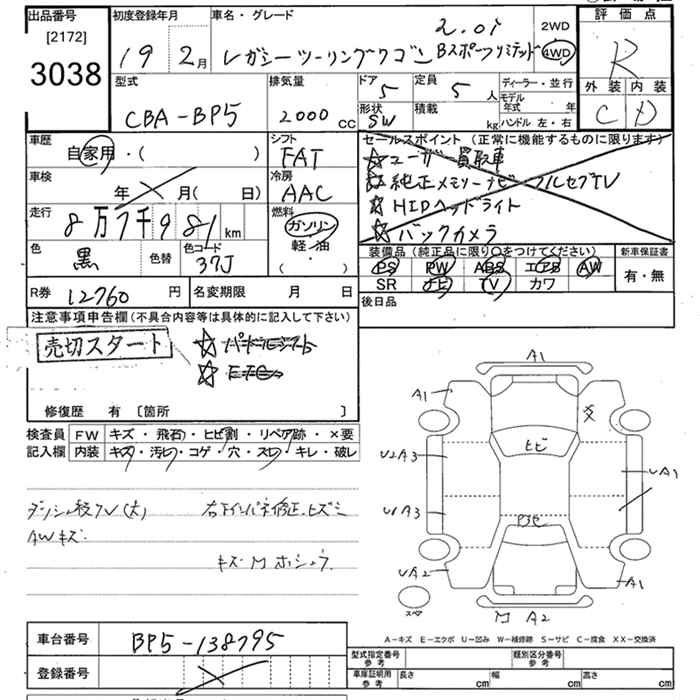 出品番号
[2172]
3038
初度登録年月
19 2月
車名・グレード
2.0i
レガシーツーリングワゴン Bスポーツリミテッド
2WD
4WD
評価点
R
外装 内装
C D
型式
CBA-BP5
排気量
2000 cc
ドア
5
形状
SW
定員
5 人
積載
kg
ディーラー・並行
モデル年式 年
ハンドル 左・右
車歴
自家用・( )
シフト
FAT
車検
年 月(日)
冷房
AAC
走行
8万7千981 km
燃料
ガソリン
軽・油
( ・ )
色
黒
色替
色コード
37J
セールスポイント (正常に機能するものに限ります)
☆ユーザー買取車
☆純正メモリーナビ フルセグTV
☆HIDヘッドライト
☆バックカメラ
装備品 (純正品に限り○をつけてください)
PS PW ABS エアB AW
SR ナビ TV カワ
新車保証書
有・無
R券 12760 円
名変期限 月 日
後日品
注意事項申告欄 (不具合内容等は具体的に記入して下さい)
売切スタート
☆パドルシフト
☆ETC
修復歴 有 [箇所 ]
検査員記入欄
FW キズ・飛石・ヒビ割・リペア跡・×要
内装 キズ・汚れ・コゲ・穴・スレ・キレ・破レ
AWキズ
A1
A1
X
ヒビ
A3
UA1
A3
UA2
A1
スペア
A2
A-キズ E-エクボ U-凹み W-補修跡 S-サビ C-腐食 XX-交換済
車台番号
BP5-138795
登録番号
型式指定番号 参考
類別区分番号 参考
車庫証明用 参考
長さ cm
幅 cm
高さ cm